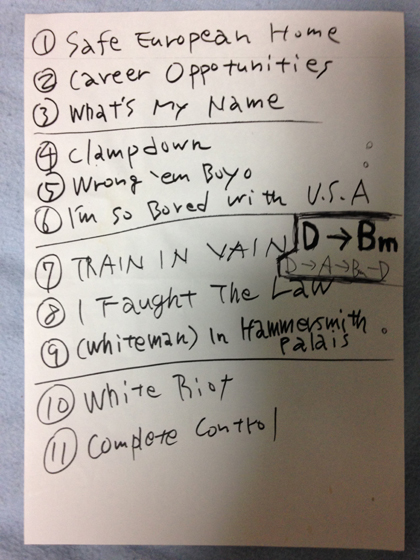 ① Safe European Home
② Career Oppotunities
③ What's My Name
④ Clampdown
⑤ Wrong 'em Boyo
⑥ I'm so Bored with U.S.A
⑦ TRAIN IN VAIN
D → Bm
D → A → Bm → D
⑧ I Faught The Law
⑨ (Whiteman) In Hammersmith
Palais
⑩ White Riot
⑪ Complete Control